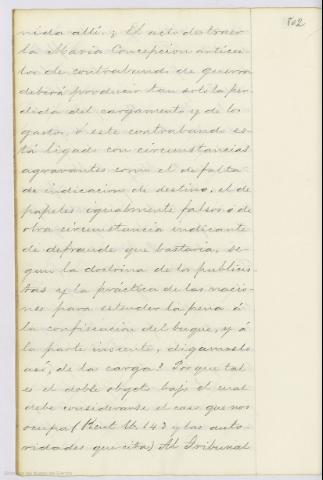 802
nida alli; El acto de traer
la Maria Concepcion articu-
los de contrabando de guerra
deberá producir tan solo la per-
dida del cargamento y de los
gastos, ó este contrabando es-
tá ligado con circunstancias
agravantes como el de falta
de indicacion de destino, el de
papeles igualmente falsos ó de
otra circunstancia indicante
de defraude que bastaria, se-
gun la doctrina de los publicis-
tas y la práctica de las nacio-
nes para estender la pena á
la confiscacion del buque, y á
la parte inocente, digamoslo
asi, de la carga? Porque tal
es el doble objeto bajo el cual
debe considerarse el caso que nos
ocupa (Kent 143 y las auto-
ridades que cita) Al Tribunal